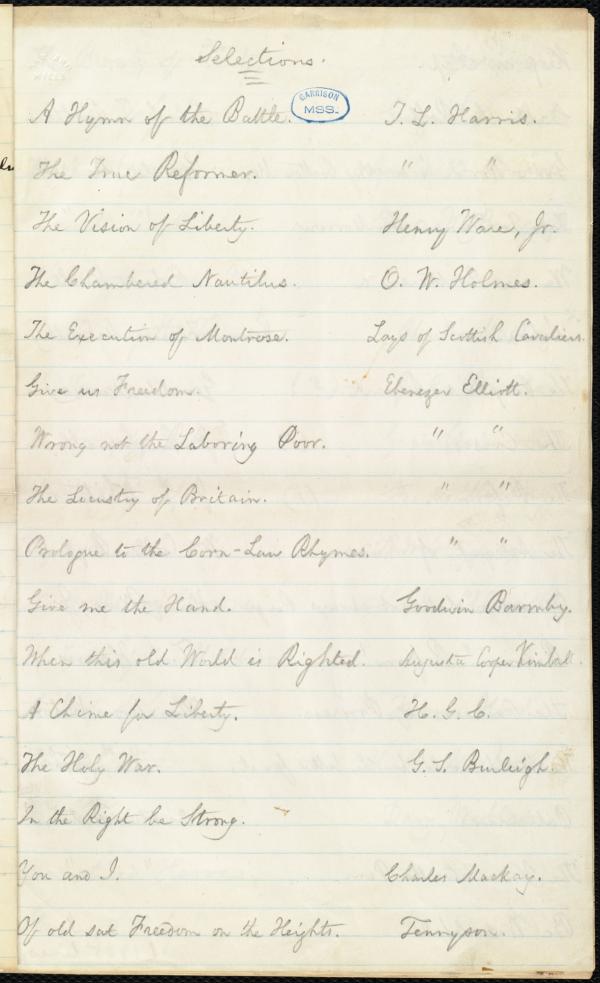 Selections.
GARRISON
MSS.
A Hymn of the Battle. T. L. Harris.
The True Reformer. " "
The Vision of Liberty. Henry Ware, Jr.
The Chambered Nautilus. O. W. Holmes.
The Execution of Montrose. Lays of Scottish Cavaliers.
Give us Freedom. Ebenezer Elliott.
Wrong not the Laboring Poor. " "
The Locustry of Britain. " "
Prologue to the Corn-Law Rhymes. " "
Give me the Hand. Goodwin Barmby.
When this old World is Righted. Augusta Cooper Kimball.
A Chime for Liberty. H. G. C.
The Holy War. G. S. Burleigh.
In the Right be Strong.
You and I. Charles Mackay.
Of old sat Freedom on the Heights. Tennyson.